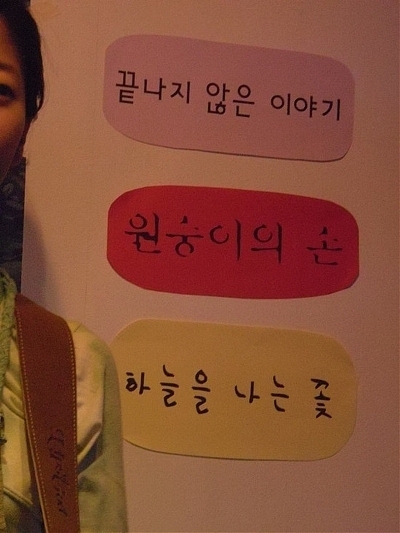 끝나지 않은 이야기
원숭이의 손
하늘을 나는 꽃